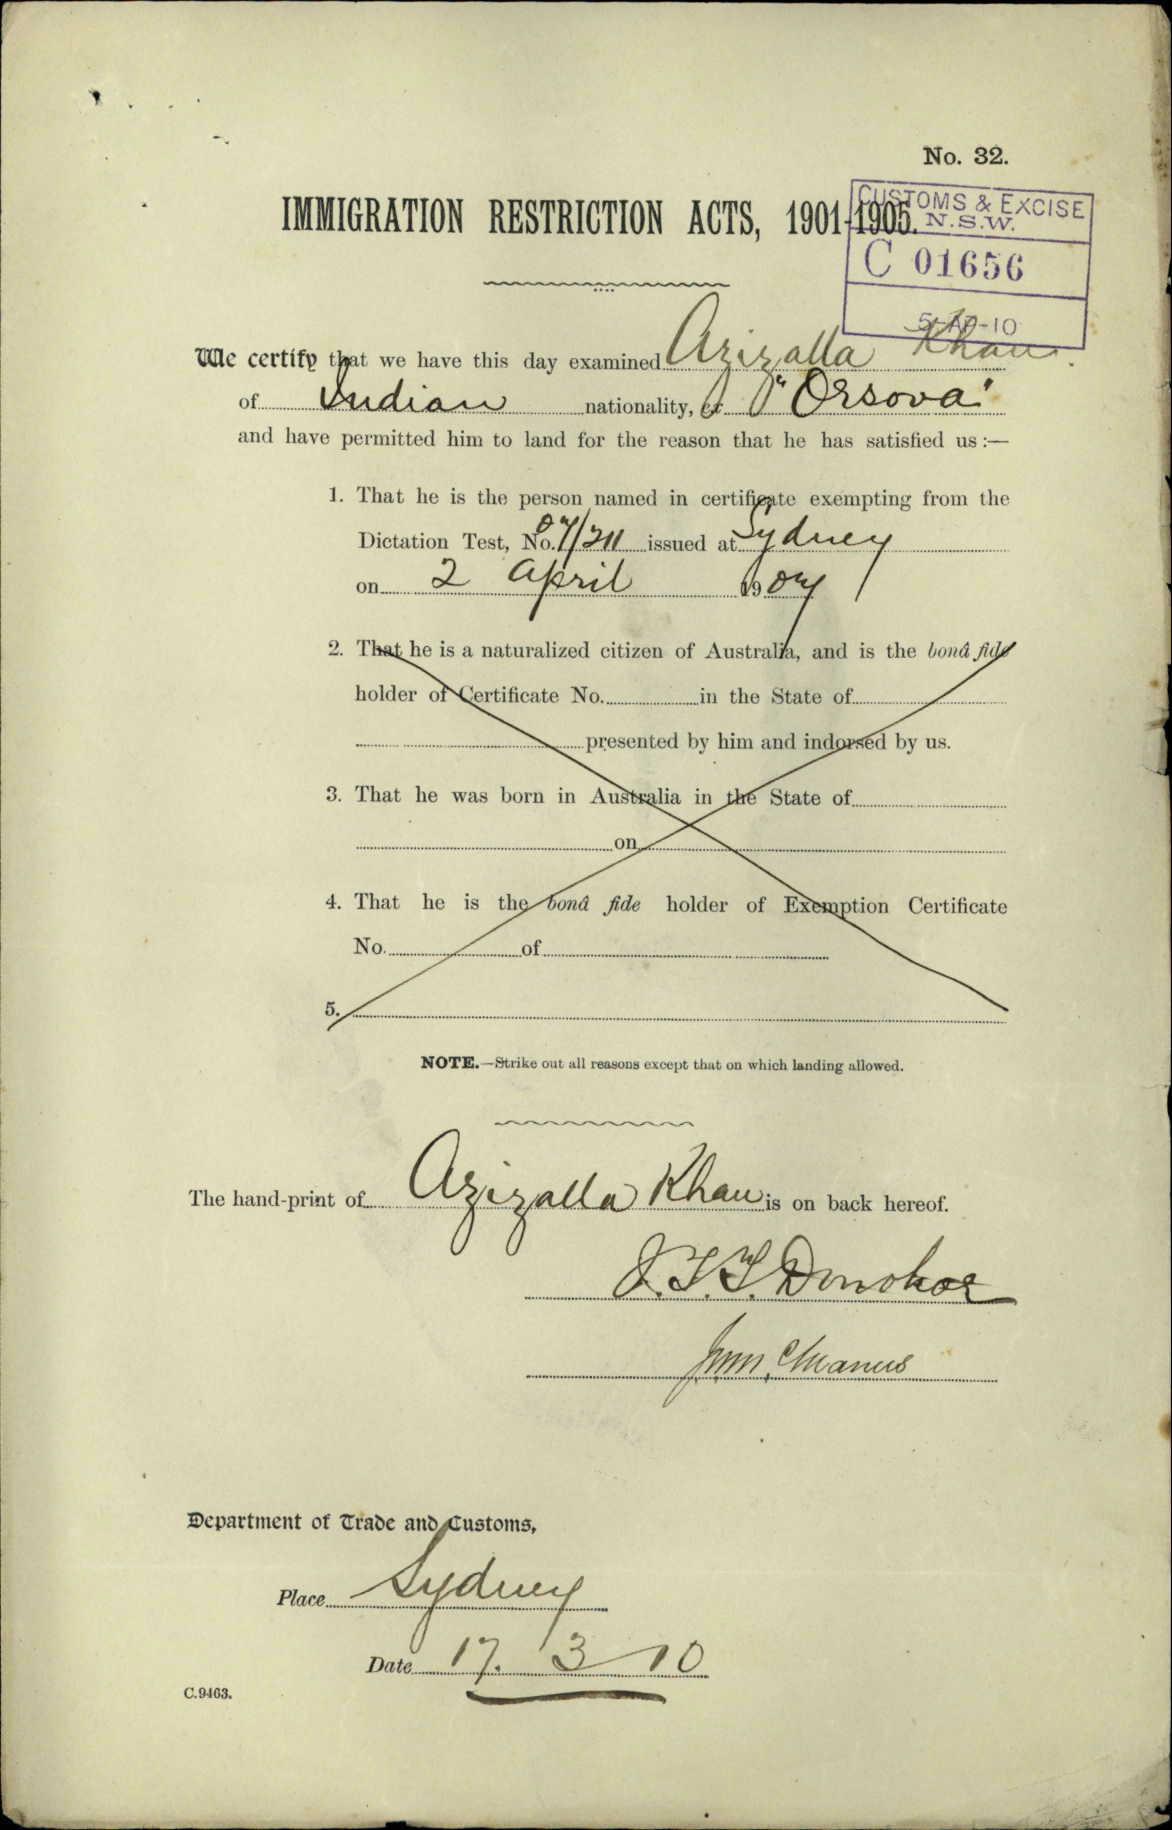 No. 32.
IMMIGRATION RESTRICTION ACTS, 1901-1905.
CUSTOMS & EXCISE
N.S.W.
C 01656
5-AP-10
We certify that we have this day examined Azizalla Khan
of Indian nationality, ex "Orsova"
and have permitted him to land for the reason that he has satisfied us:—
1. That he is the person named in certificate exempting from the
Dictation Test, No. 07/211 issued at Sydney
on 2 April 1907
2. That he is a naturalized citizen of Australia, and is the bonâ fide
holder of Certificate No. in the State of
presented by him and indorsed by us.
3. That he was born in Australia in the State of
on
4. That he is the bonâ fide holder of Exemption Certificate
No. of
5.
NOTE.—Strike out all reasons except that on which landing allowed.
The hand-print of Azizalla Khan is on back hereof.
J.T.T. Donohoe
Department of Trade and Customs,
Place Sydney
Date 17. 3 10
C.9463.